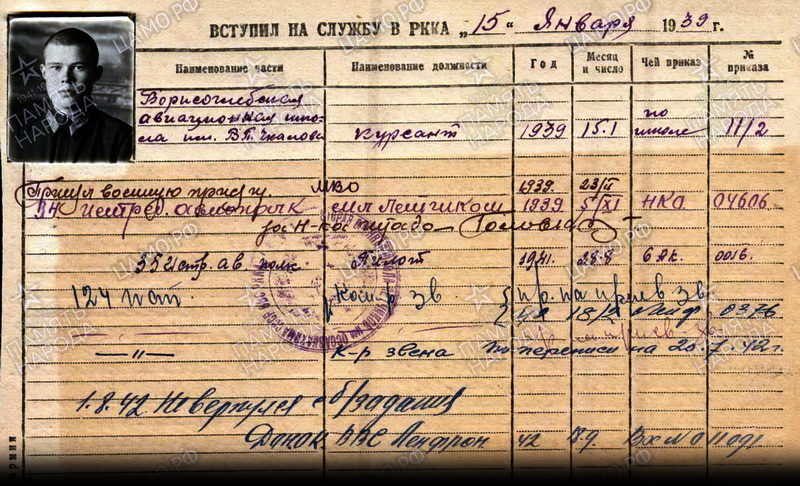 ВСТУПИЛ НА СЛУЖБУ В РККА „15“ Января 1939 г.
Наименование части Наименование должности Год Месяц и число Чей приказ № приказа
Борисоглебская
авиационная шко-
ла им. В.П. Чкалова курсант 1939 15.I по школе 11/2
Принял военную присягу. МВО 1939. 23/II
мл. летчиком 1939 5/XI НКО 04606
за Н-ка штаба
истр. ав. полк. Пилот 1941. 28.8 6 АК. 0016.
124 иап. Ком-р зв.
13/2 0376
—〃— К-р звена По переписи на 20.7.42 г.
1.8.42 Не вернулся с б/задания
Донес. ВВС Ленфрон 42
ЦАМО.РФ
ПАМЯТЬ НАРОДА